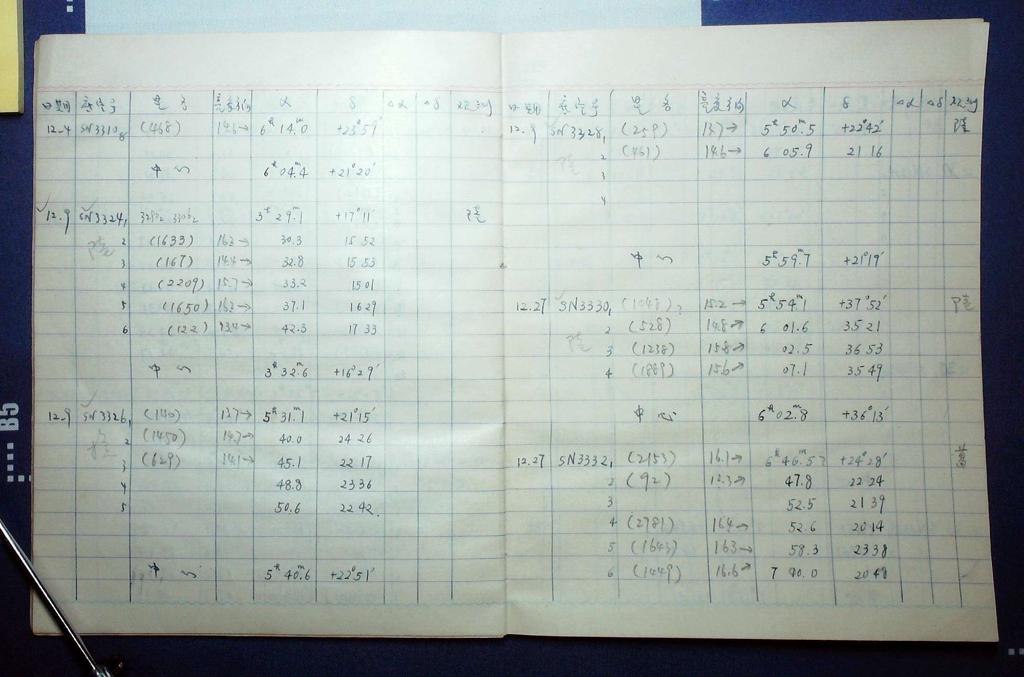 日期 底片号 星名 亮度 α δ Δα Δδ 观测
12.4 SN3310₈ (468) 14.6→ 6ʰ14.ᵐ0 +23°51′
中心 6ʰ04.ᵐ4 +21°20′
12.9 SN3324₁ 3ʰ29.ᵐ1 +17°11′ 陆
2 (1633) 16.2→ 30.3 15 52
3 (167) 14.4→ 32.8 15 53
4 (2209) 15.7→ 33.2 15 01
5 (1650) 16.2→ 37.1 16 29
6 (122) 13.4→ 42.3 17 33
中心 3ʰ32.ᵐ6 +16°29′
12.9 SN3326₁ (140) 13.7→ 5ʰ31.ᵐ1 +21°15′
2 (1450) 14.7→ 40.0 24 26
3 (629) 14.1→ 45.1 22 17
4 48.8 23 36
5 50.6 22 42
中心 5ʰ40.ᵐ6 +22°51′
日期 底片号 星名 亮度 α δ Δα Δδ 观测
12.9 SN3328₁ (259) 13.7→ 5ʰ50.ᵐ5 +22°42′ 陆
2 (461) 14.6→ 6 05.9 21 16
3
4
中心 5ʰ59.ᵐ7 +21°19′
12.27 SN3330₁ (1048)? 15.2→ 5ʰ54.ᵐ1 +37°52′ 陆
2 (528) 14.8→ 6 01.6 35 21
3 (1238) 15.8→ 02.5 36 53
4 (1889) 15.6→ 07.1 35 49
中心 6ʰ02.ᵐ8 +36°13′
12.27 SN3332₁ (2153) 16.1→ 6ʰ46.ᵐ5? +24°28′
2 (92) 12.3→ 47.8 22 24
3 52.5 21 39
4 (2781) 16.4→ 52.6 20 14
5 (1643) 16.3→ 58.3 23 38
6 (1449) 16.6→ 7 00.0 20 48
B5